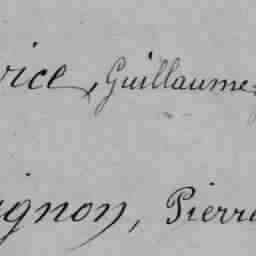 rice, Guillaume
ignon, Pierre